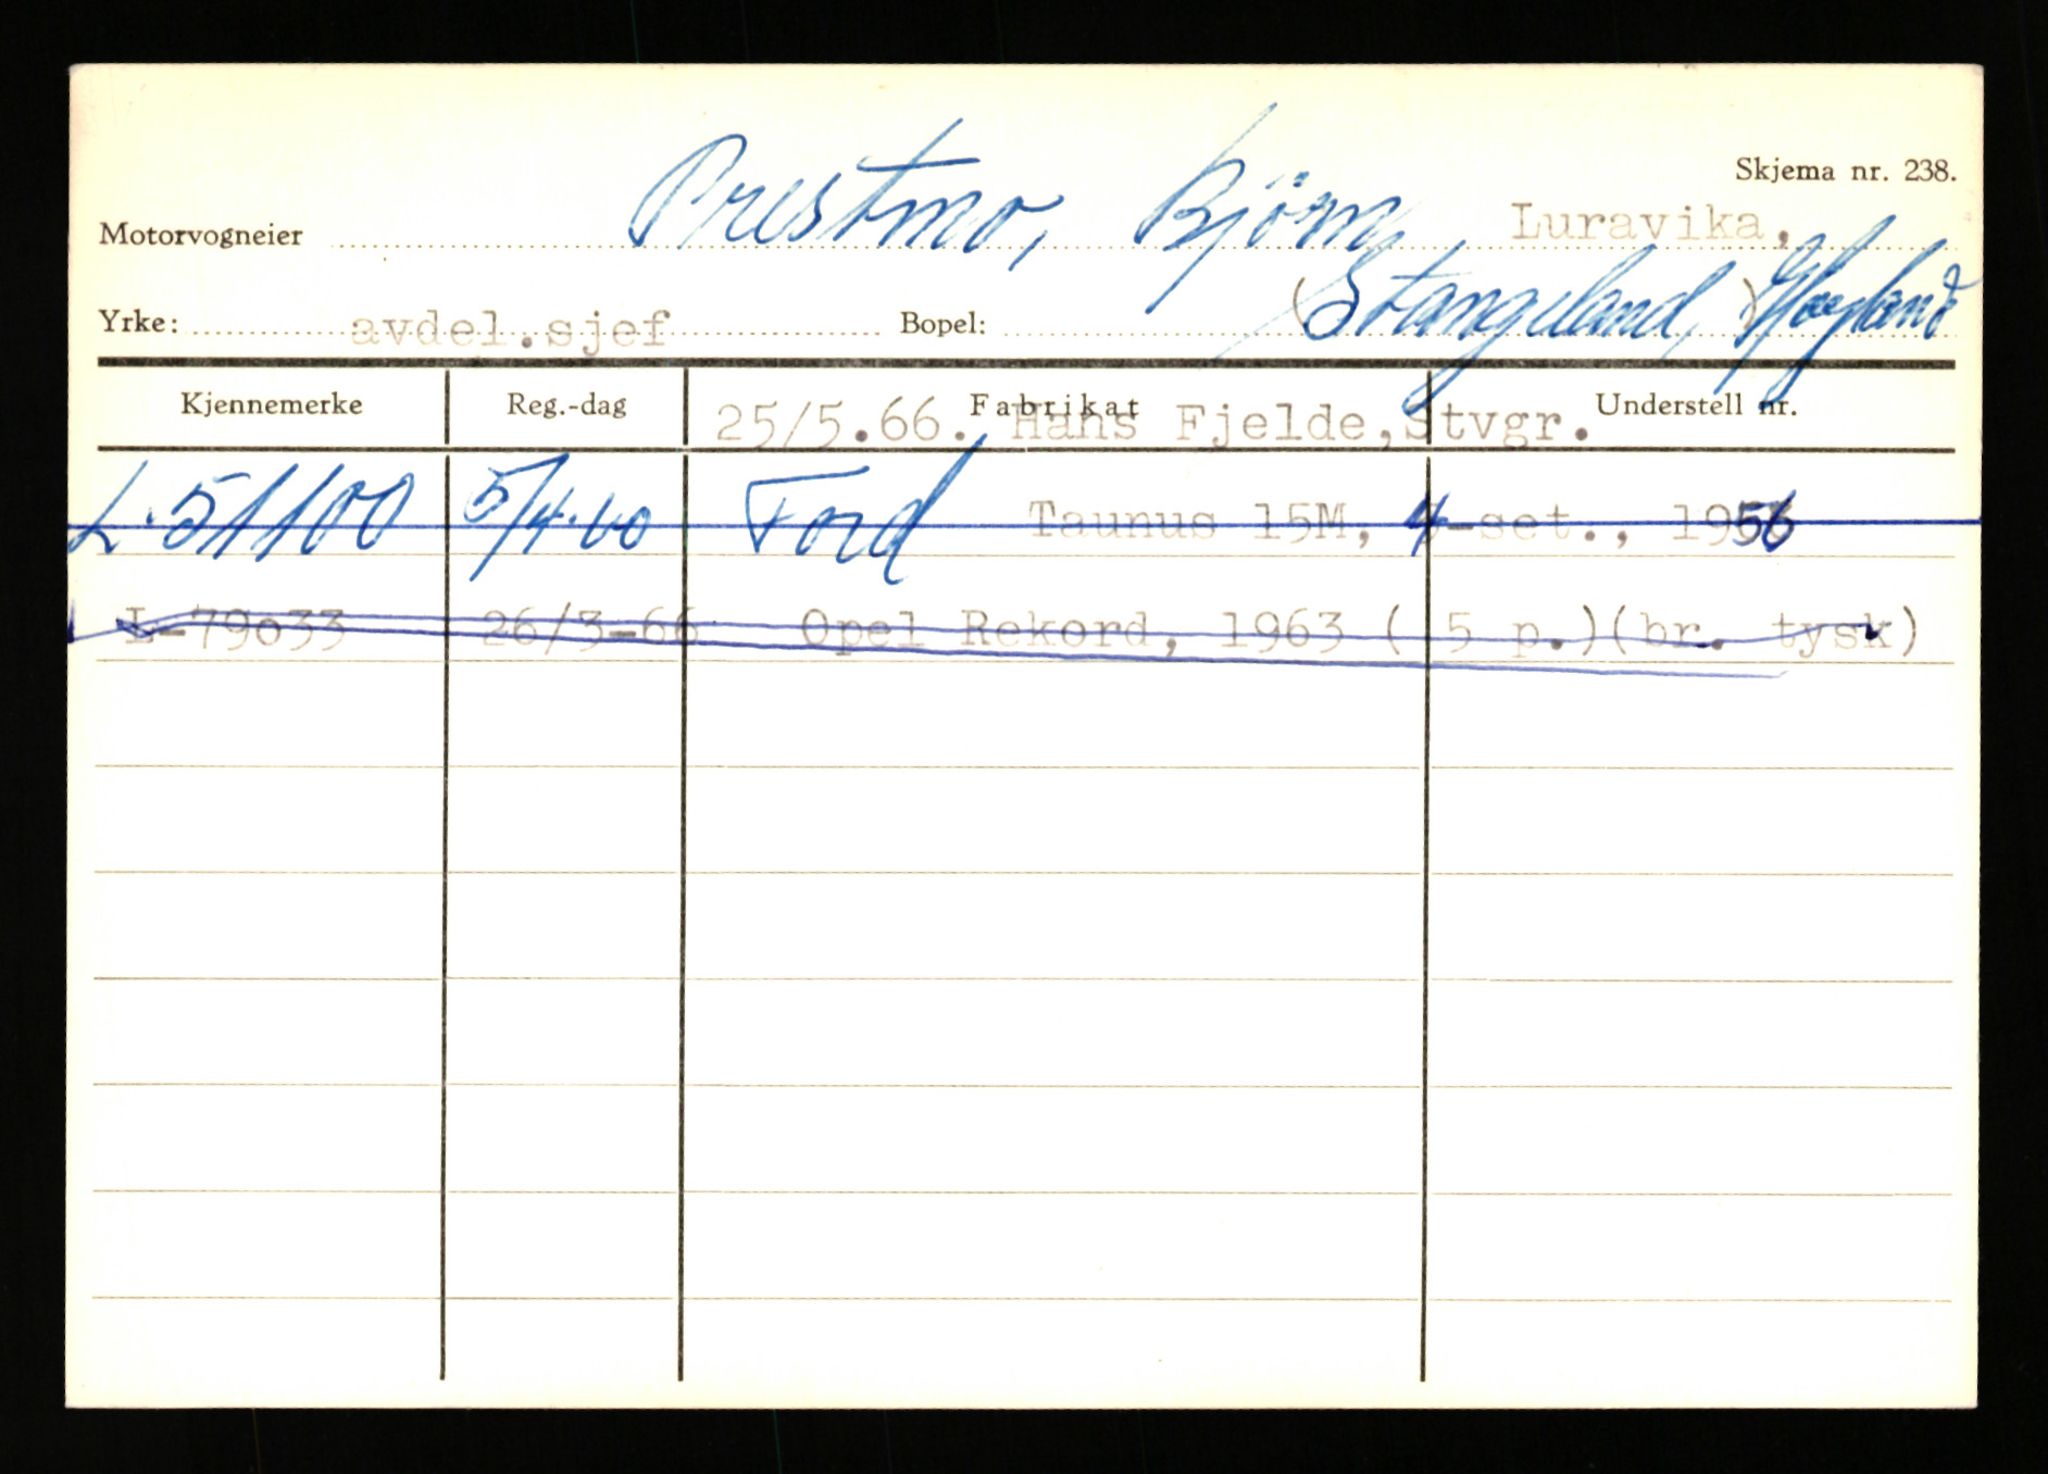 Skjema nr. 238.
Motorvogneier Prestmo, Björn Luravika,
Yrke: avdel.sjef Bopel: (Stangeland,) Høyland
Kjennemerke Reg.-dag Fabrikat Understell nr.
25/5.66. Hans Fjelde, Stvgr.
L-51100 5/4-60 Ford Taunus 15M, 4-set., 1956
L-79033 26/3-66 Opel Rekord, 1963 ( 5 p.)(br. tysk)